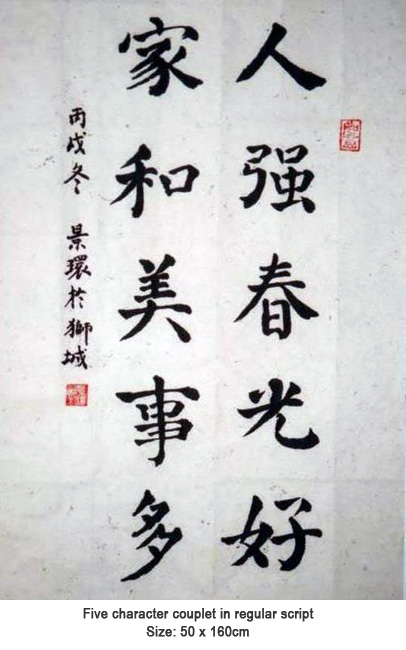 人强春光好
家和美事多
丙戌冬 景環於獅城
Five character couplet in regular script
Size: 50 x 160cm